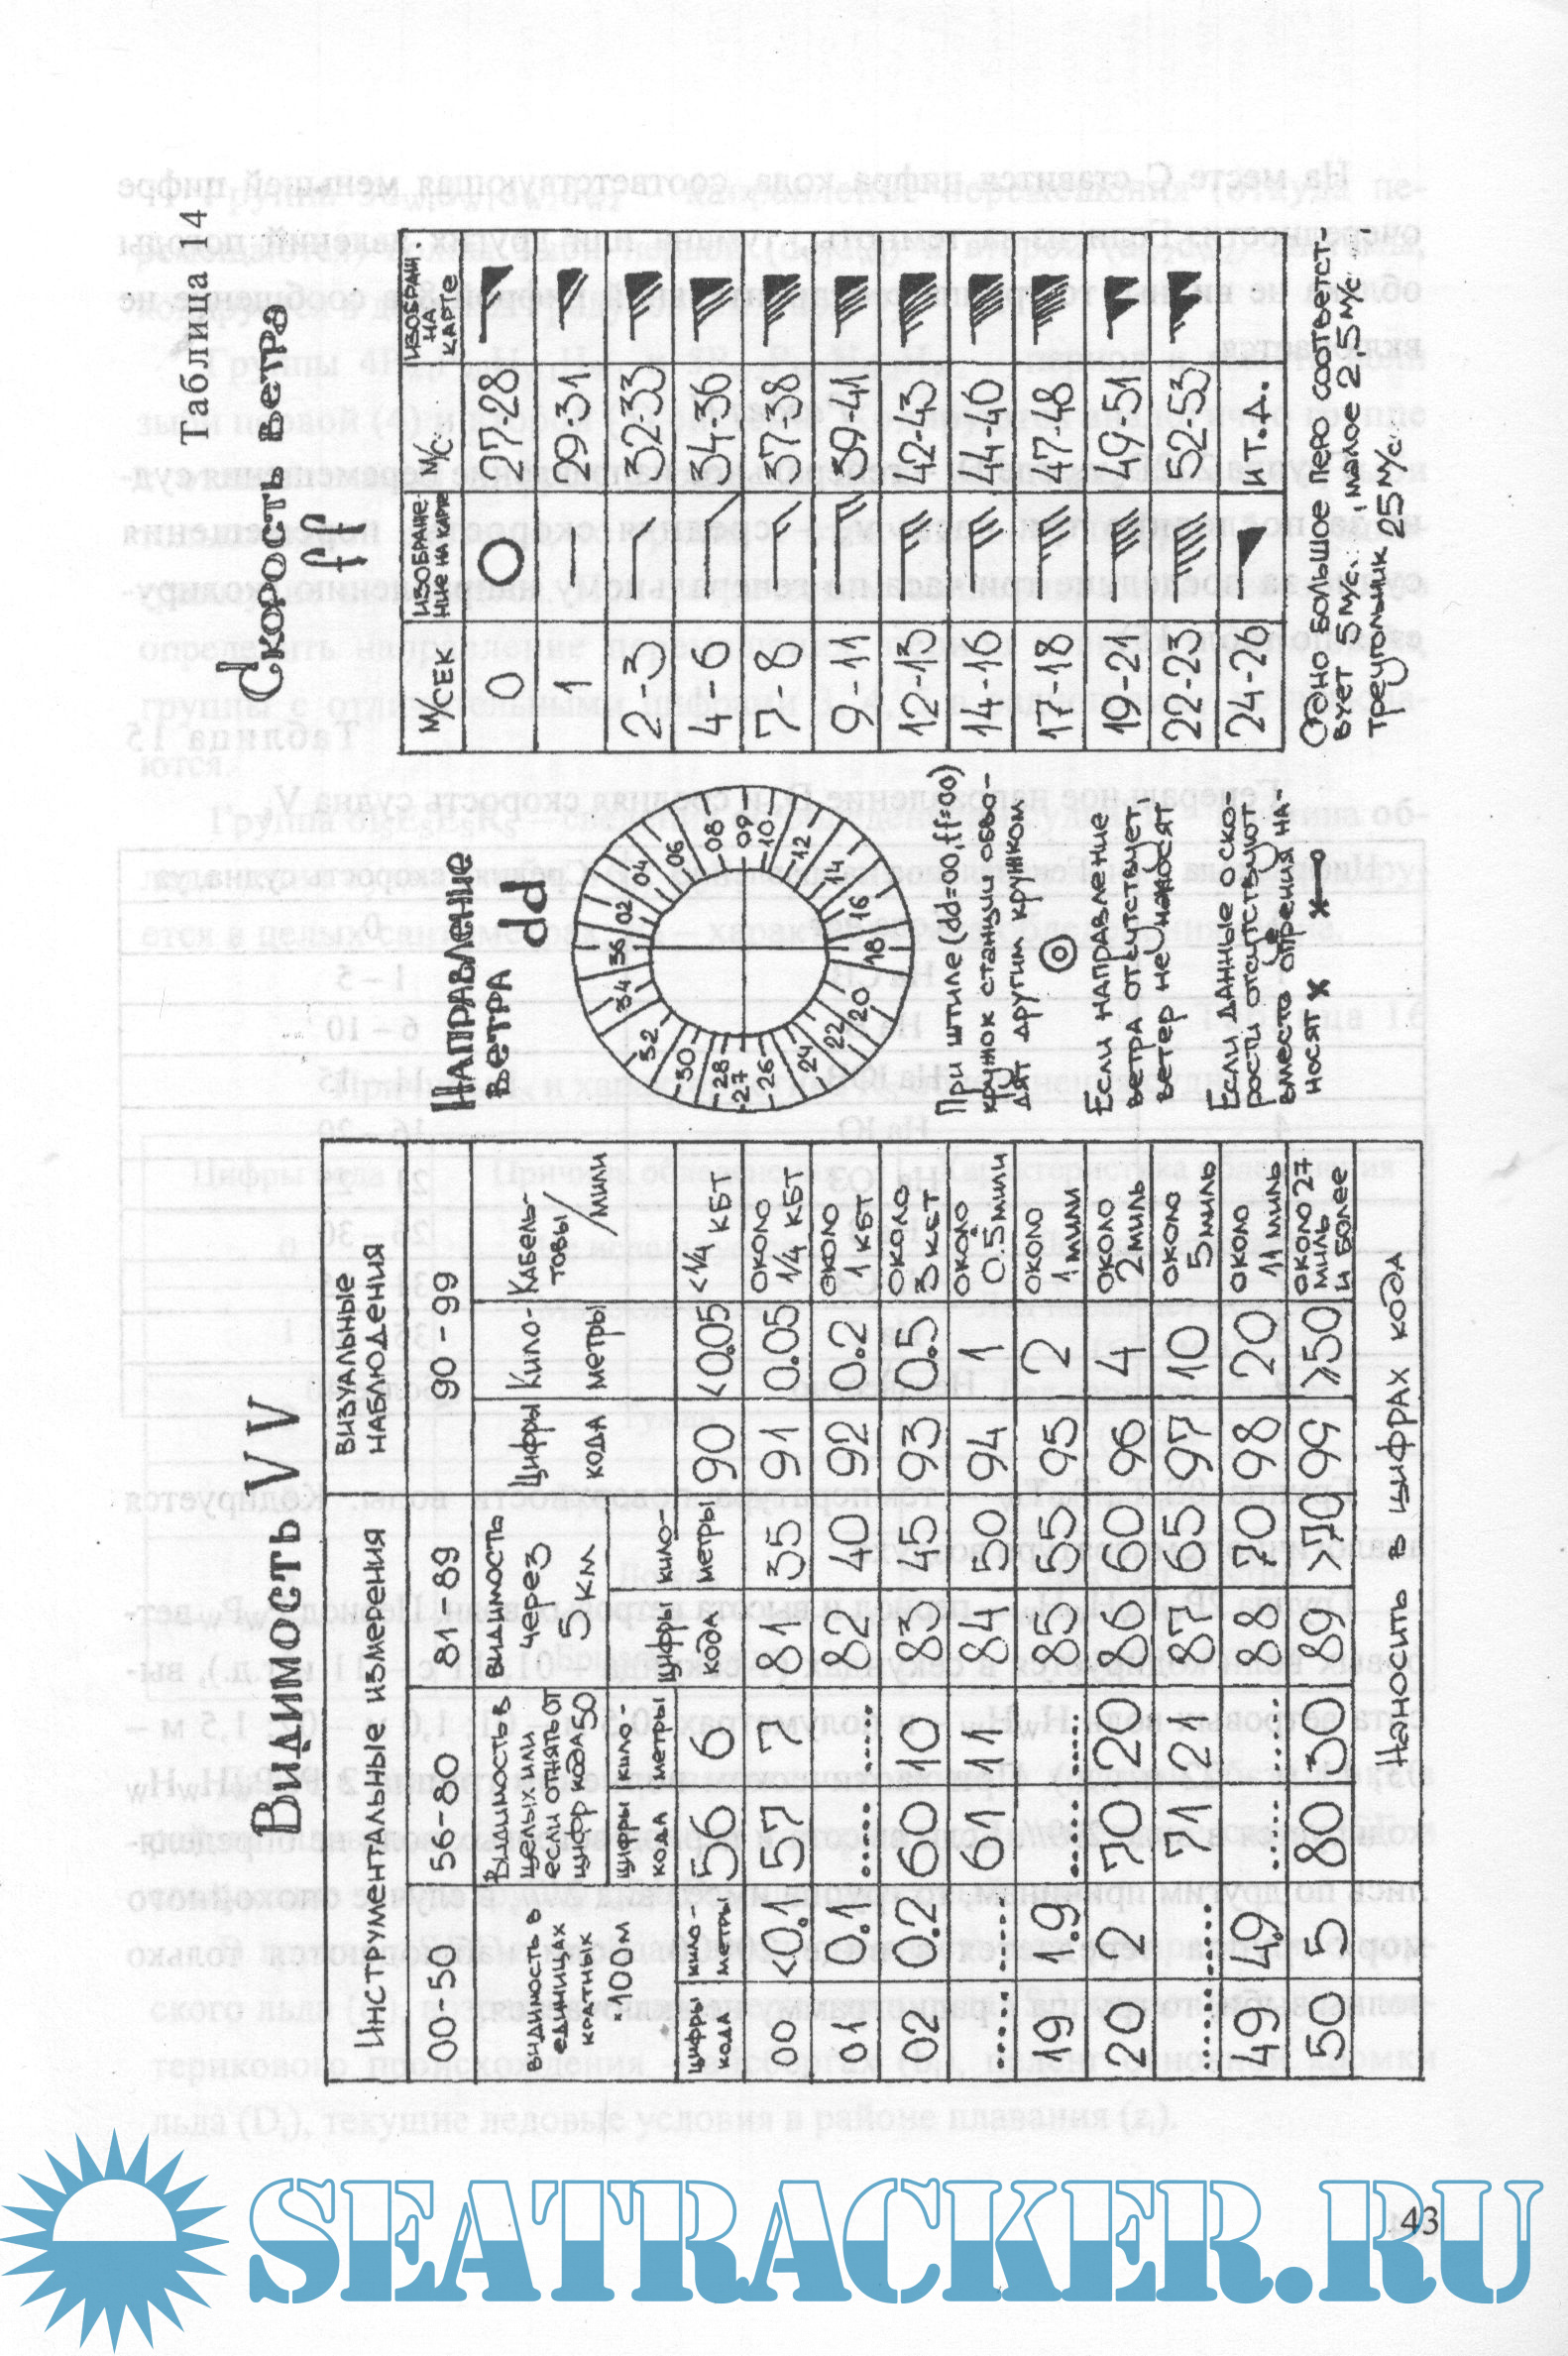 Таблица 14
Видимость VV
Инструментальные измерения
Визуальные
наблюдения
00-50 56-80 81-89 90-99
видимость в
единицах
кратных
·100м
Видимость в
целых или
если отнять от
цифр кода 50
видимость
через
5 км
Цифры
кода
Кило-
метры
Кабель-
товы
/мили
цифры
кода
кило-
метры
цифры
кода
кило-
метры
цифры
кода
кило-
метры
56 6 90 <0.05 <1/4 кбт
00 <0.1 57 7 81 35 91 0.05 около 1/4 кбт
01 0.1 ...... 82 40 92 0.2 около 1 кбт
02 0.2 60 10 83 45 93 0.5 около 3 кбт
...... 61 11 84 50 94 1 около 0.5 мили
19 1.9 ...... 85 55 95 2 около 1 мили
20 2 70 20 86 60 96 4 около 2 миль
...... 71 21 87 65 97 10 около 5 миль
49 4.9 ...... 88 70 98 20 около 11 миль
50 5 80 30 89 >70 99 ≥50 около 27 миль и более
Наносить в цифрах кода
Направление
ветра dd
36 02 04 06 08 09 10 12 14 16 18 20 22 24 26 27 28 30 32 34
При штиле (dd=00, ff=00)
кружок станции обво-
дят другим кружком
Если направление
ветра отсутствует,
ветер не наносят
Если данные о ско-
рости отсутствуют
вместо оперения на-
носят x
Скорость ветра
ff
м/сек
Изображе-
ние на карте
м/с.
Изображ.
на
карте
0 27-28
1 29-31
2-3 32-33
4-6 34-36
7-8 37-38
9-11 39-41
12-13 42-43
14-16 44-46
17-18 47-48
19-21 49-51
22-23 52-53
24-26 и т.д.
Одно большое перо соответст-
вует 5 м/с., малое 2,5 м/с
треугольник 25 м/с.
43
SEATRACKER.RU